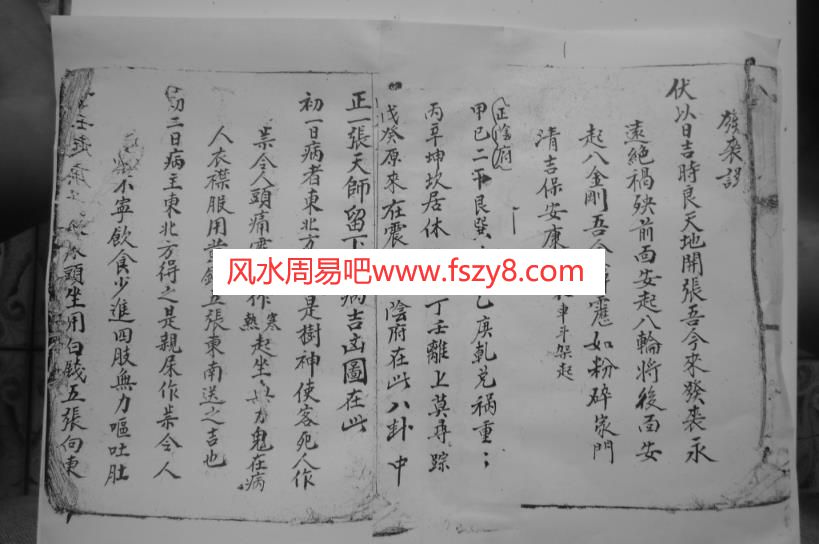 發喪謬
伏以日吉時良天地開張吾今來發喪永
遠絕禍殃前面安起八輪將後面安
起八金剛吾今 應如粉碎家門
清吉保安康 申斗架起
正陰府
甲己二干艮巽 乙庚乾兑禍重
丙辛坤坎居休 丁壬離上莫尋踪
戊癸原來在震 陰府在此八卦中
正一張天師留下 病吉凶圖在此
初一日病者東北方 是樹神使客死人作
祟令人頭痛 作寒熱起坐 力鬼在病
人衣襟服用黄錢五張東南送之吉也
初二日病主東北方得之是親 作祟令人
不寧飲食少進四肢無力嘔吐肚
頭坐用白錢五張向東
风水周易吧www.fszy8.com